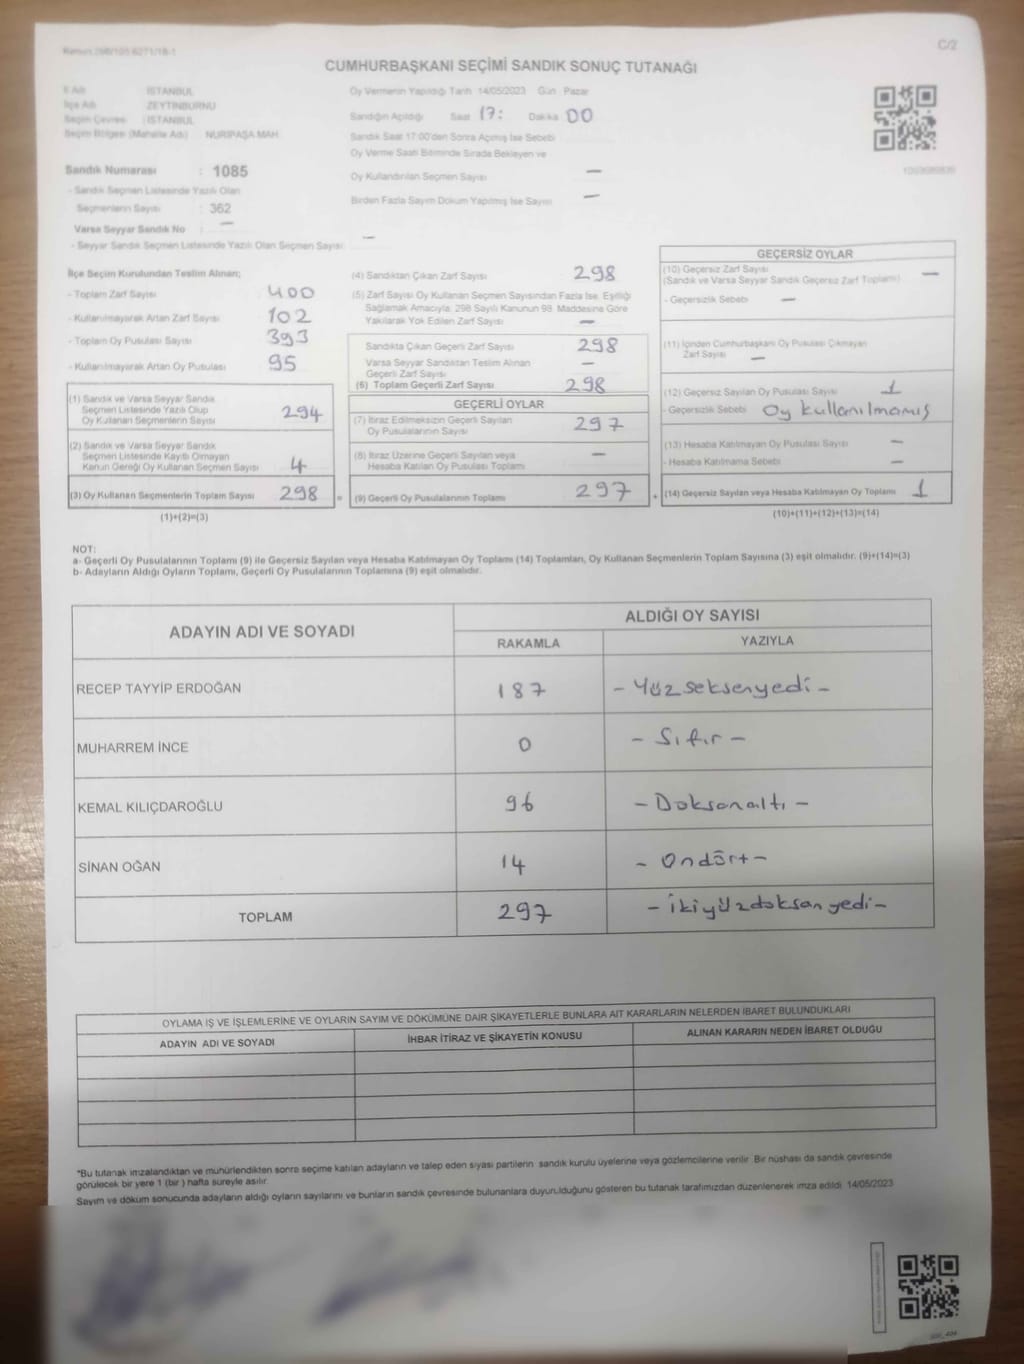 C/2
CUMHURBAŞKANI SEÇİMİ SANDIK SONUÇ TUTANAĞI
İl Adı : İSTANBUL
İlçe Adı : ZEYTİNBURNU
Seçim Çevresi : İSTANBUL
Seçim Bölgesi (Mahalle Adı) : NURİPAŞA MAH.
Sandık Numarası : 1085
- Sandık Seçmen Listesinde Yazılı Olan
Seçmenlerin Sayısı : 362
Varsa Seyyar Sandık No : —
- Seyyar Sandık Seçmen Listesinde Yazılı Olan Seçmen Sayısı: —
Oy Vermenin Yapıldığı Tarih 14/05/2023 Gün : Pazar
Sandığın Açıldığı Saat 17: Dakika 00
Sandık Saat 17:00'den Sonra Açılmış İse Sebebi
Oy Verme Saati Bitiminde Sırada Bekleyen ve
Oy Kullandırılan Seçmen Sayısı —
Birden Fazla Sayım Döküm Yapılmış İse Sayısı —
İlçe Seçim Kurulundan Teslim Alınan;
- Toplam Zarf Sayısı 400
- Kullanılmayarak Artan Zarf Sayısı 102
- Toplam Oy Pusulası Sayısı 393
- Kullanılmayarak Artan Oy Pusulası 95
(1) Sandık ve Varsa Seyyar Sandık
Seçmen Listesinde Yazılı Olup
Oy Kullanan Seçmenlerin Sayısı 294
(2) Sandık ve Varsa Seyyar Sandık
Seçmen Listesinde Kayıtlı Olmayan
Kanun Gereği Oy Kullanan Seçmen Sayısı 4
(3) Oy Kullanan Seçmenlerin Toplam Sayısı 298 =
(1)+(2)=(3)
(4) Sandıktan Çıkan Zarf Sayısı 298
(5) Zarf Sayısı Oy Kullanan Seçmen Sayısından Fazla İse, Eşitliği
Sağlamak Amacıyla; 298 Sayılı Kanunun 98. Maddesine Göre
Yakılarak Yok Edilen Zarf Sayısı —
Sandıkta Çıkan Geçerli Zarf Sayısı 298
Varsa Seyyar Sandıktan Teslim Alınan
Geçerli Zarf Sayısı —
(6) Toplam Geçerli Zarf Sayısı 298
GEÇERLİ OYLAR
(7) İtiraz Edilmeksizin Geçerli Sayılan
Oy Pusulalarının Sayısı 297
(8) İtiraz Üzerine Geçerli Sayılan veya
Hesaba Katılan Oy Pusulası Toplamı —
(9) Geçerli Oy Pusulalarının Toplamı 297 +
GEÇERSİZ OYLAR
(10) Geçersiz Zarf Sayısı
(Sandık ve Varsa Seyyar Sandık Geçersiz Zarf Toplamı) —
- Geçersizlik Sebebi —
(11) İçinden Cumhurbaşkanı Oy Pusulası Çıkmayan
Zarf Sayısı —
(12) Geçersiz Sayılan Oy Pusulası Sayısı 1
- Geçersizlik Sebebi Oy kullanılmamış
(13) Hesaba Katılmayan Oy Pusulası Sayısı —
- Hesaba Katılmama Sebebi —
(14) Geçersiz Sayılan veya Hesaba Katılmayan Oy Toplamı 1
(10)+(11)+(12)+(13)=(14)
NOT:
a- Geçerli Oy Pusulalarının Toplamı (9) ile Geçersiz Sayılan veya Hesaba Katılmayan Oy Toplamı (14) Toplamları, Oy Kullanan Seçmenlerin Toplam Sayısına (3) eşit olmalıdır. (9)+(14)=(3)
b- Adayların Aldığı Oyların Toplamı, Geçerli Oy Pusulalarının Toplamına (9) eşit olmalıdır.
ADAYIN ADI VE SOYADI
ALDIĞI OY SAYISI
RAKAMLA YAZIYLA
RECEP TAYYİP ERDOĞAN 187 - Yüzseksenyedi -
MUHARREM İNCE 0 - Sıfır -
KEMAL KILIÇDAROĞLU 96 - Doksanaltı -
SİNAN OĞAN 14 - Ondört -
TOPLAM 297 - İkiyüzdoksanyedi -
OYLAMA İŞ VE İŞLEMLERİNE VE OYLARIN SAYIM VE DÖKÜMÜNE DAİR ŞİKAYETLERLE BUNLARA AİT KARARLARIN NELERDEN İBARET BULUNDUKLARI
ADAYIN ADI VE SOYADI İHBAR İTİRAZ VE ŞİKAYETİN KONUSU ALINAN KARARIN NEDEN İBARET OLDUĞU
*Bu tutanak imzalandıktan ve mühürlendikten sonra seçime katılan adayların ve talep eden siyasi partilerin sandık kurulu üyelerine veya gözlemcilerine verilir. Bir nüshası da sandık çevresinde
görülecek bir yere 1 (bir) hafta süreyle asılır.
Sayım ve döküm sonucunda adayların aldığı oyların sayılarını ve bunların sandık çevresinde bulunanlara duyurulduğunu gösteren bu tutanak tarafımızdan düzenlenerek imza edildi. 14/05/2023